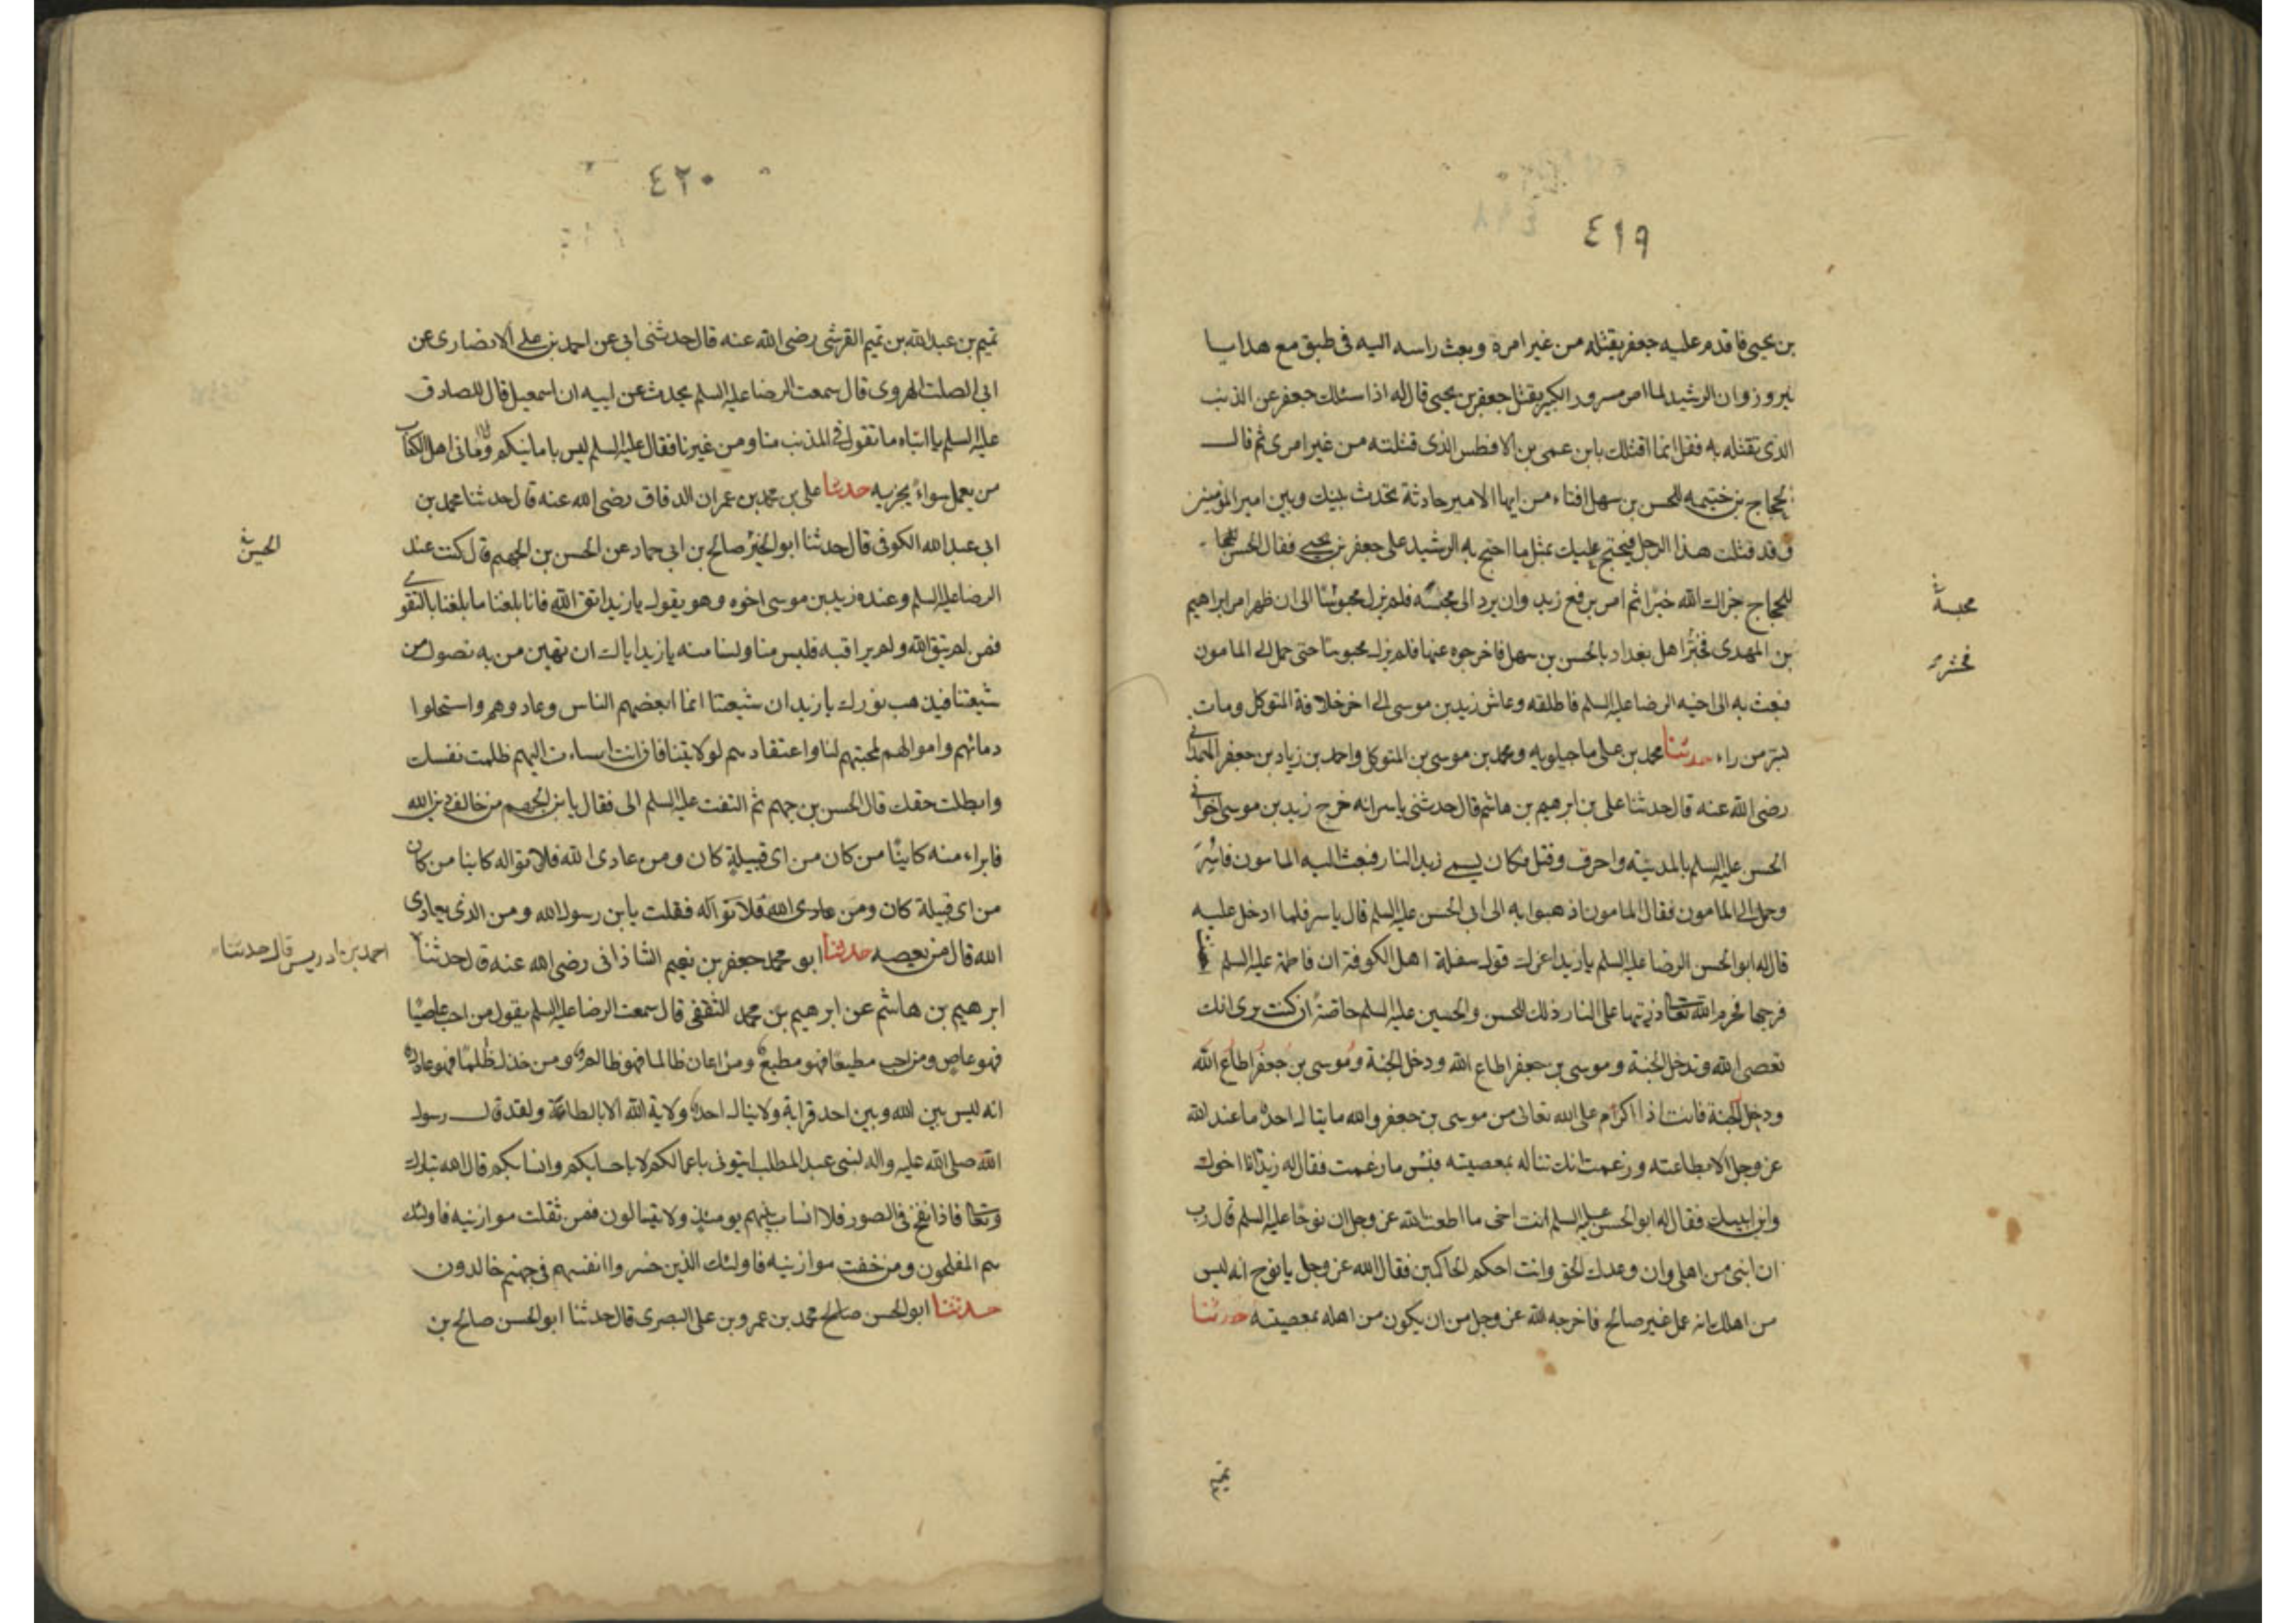 ٤١٩
بن يحيى فاقدم عليه جعفر بقتله من غير امره وبعث راسه اليه فى طبق مع هدايا
نيروز وان الرشيد لما امر مسرور الكبير بقتل جعفر بن يحيى قال له اذا سئلك جعفر عن الذنب
الذى تقتله به فقل انما اقتلك بابن عمى بن الافطس الذى قتلته من غير امرى ثم قال
الحجاج بن خثيمه للحسن بن سهل افتامن ايها الامير حادثة تحدث بينك وبين امير المؤمنين
وقد قتلت هذا الرجل فيحتج عليك بمثل ما احتج به الرشيد على جعفر بن يحيى فقال الحسن
للحجاج جزاك الله خيرا ثم امر برفع زيد وان يرد الى محبسه فلم يزل محبوسًا الى ان ظهر امر ابراهيم
محبسه
بن المهدى فخبرا اهل بغداد بالحسن بن سهل فاخرجوه عنها فلم يزل محبوسًا حتى حمل الى المامون
فبعث به الى اخيه الرضا عليه السلم فاطلقه وعاش زيد بن موسى الى اخر خلافة المتوكل ومات
بسر من راء حدثنا محمد بن على ماجيلويه ومحمد بن موسى بن المتوكل واحمد بن زياد بن جعفر الهمدانى
رضى الله عنه قال حدثنا على بن ابرهيم بن هاشم قال حدثنى ياسر انه خرج زيد بن موسى اخو ابى
الحسن عليه السلم بالمدينة واحرق وقتل وكان يسمى زيد النار فبعث اليه المامون فاسر
وحمل الى المامون فقال المامون اذهبوا به الى ابى الحسن عليه السلم قال ياسر فلما ادخل عليه
قال له ابو الحسن الرضا عليه السلم يا زيد اغرك قول سفلة اهل الكوفة ان فاطمة عليه السلم
فرجها فحرم الله تعالى ذريتها على النار ذلك للحسن والحسين عليه السلم خاصةً ان كنت ترى انك
تعصى الله وتدخل الجنة وموسى بن جعفر اطاع الله ودخل الجنة وموسى بن جعفر اطاع الله
ودخل الجنة فانت اذا اكرام على الله تعالى من موسى بن جعفر والله ما ينال احد ما عند الله
عز وجل الا بطاعته وزعمت انك تناله بمعصيته فبئس ما زعمت فقال له زيد انا اخوك
وابن ابيك فقال له ابو الحسن عليه السلم انت اخى ما اطعت الله عز وجل ان نوحًا عليه السلم قال رب
ان ابنى من اهلى وان وعدك الحق وانت احكم الحاكمين فقال الله عز وجل يا نوح انه ليس
من اهلك انه عمل غير صالح فاخرجه الله عز وجل من ان يكون من اهله بمعصيته حدثنا
تميم
٤٢٠
تميم بن عبد الله بن تميم القرشى رضى الله عنه قال حدثنى ابى عن احمد بن على الانصارى عن
ابى الصلت الهروى قال سمعت الرضا عليه السلم يحدث عن ابيه ان اسمعيل قال للصادق
عليه السلم يا ابتاه ما تقول فى المذنب منا ومن غيرنا فقال عليه السلم ليس بامانيكم ولا امانى اهل الكتاب
من يعمل سواءً يجز به حدثنا على بن محمد بن عمران الدقاق رضى الله عنه قال حدثنا محمد بن
ابى عبد الله الكوفى قال حدثنا ابو الخير صالح بن ابى حماد عن الحسن بن الجهم قال كنت عند
الحسين
الرضا عليه السلم وعنده زيد بن موسى اخوه وهو يقول يا زيد اتق الله فانا بلغنا ما بلغنا بالتقوى
فمن لم يتق الله ولم يراقبه فليس منا ولسنا منه يا زيد اياك ان تهين من به تصول من
شيعتنا فيذهب نورك يا زيد ان شيعتنا انما ابغضهم الناس وعادوهم واستحلوا
دمائهم واموالهم لمحبتهم لنا واعتقادهم لولايتنا فان انت اساءت اليهم ظلمت نفسك
وابطلت حقك قال الحسن بن جهم ثم التفت عليه السلم الى فقال يا بن الجهم من خالف دين الله
فابراء منه كاينًا من كان من اى قبيلةٍ كان ومن عادى الله فلا تواله كاينا من كان
من اى قبيلة كان ومن عادى الله فلا تواله فقلت يا بن رسول الله ومن الذى يعادى
الله قال من يعصيه حدثنا ابو محمد جعفر بن نعيم الشاذانى رضى الله عنه قال حدثنا
احمد بن ادريس قال حدثنا
ابرهيم بن هاشم عن ابرهيم بن محمد الثقفى قال سمعت الرضا عليه السلم يقول من احب عاصيًا
فهو عاصٍ ومن احب مطيعًا فهو مطيع ومن اعان ظالما فهو ظالم ومن خذل ظلمًا فهو عادل
انه ليس بين الله وبين احد قرابة ولا ينال احد ولاية الله الا بالطاعة ولقد قال رسول
الله صلى الله عليه واله لبنى عبد المطلب ايتونى باعمالكم لا باحسابكم وانسابكم قال الله تبارك
وتعالى فاذا نفخ فى الصور فلا انساب بينهم يومئذٍ ولا يتسالون فمن ثقلت موازينه فاولئك
هم المفلحون ومن خفت موازينه فاولئك الذين خسروا انفسهم فى جهنم خالدون
حدثنا ابو الحسن صالح محمد بن عمرو بن على البصرى قال حدثنا ابو الحسن صالح بن